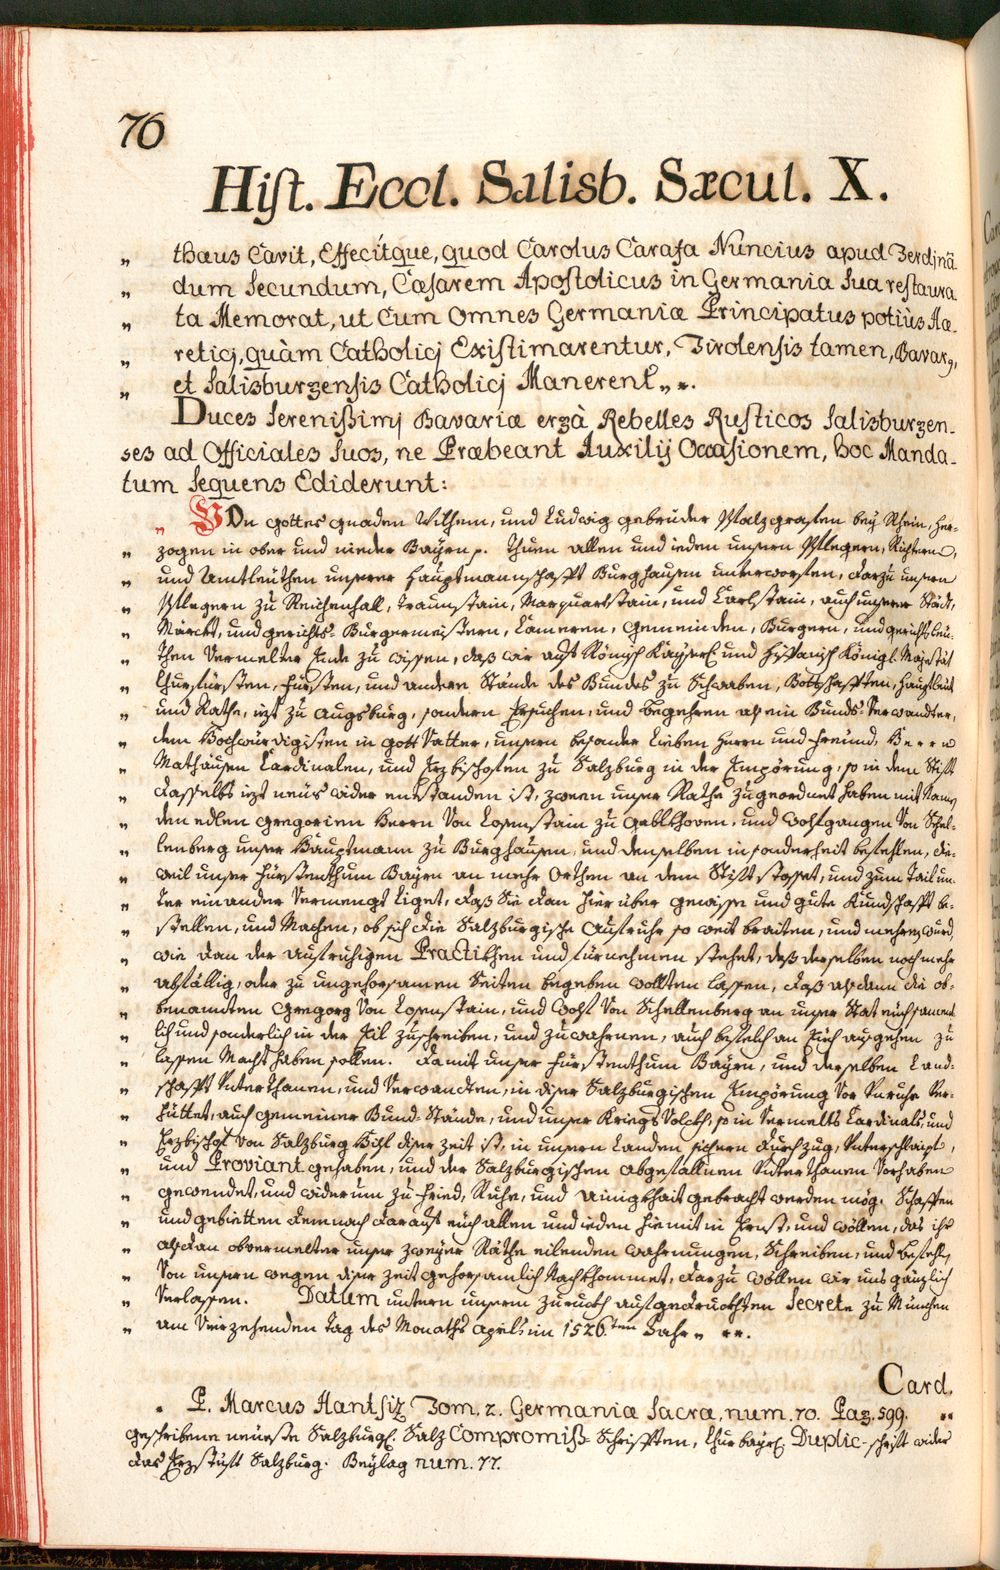 76
Hist. Eccl. Salisb. Sæcul. X.
„ thæus Cavit, Effecitque, quod Carolus Carafa Nuncius apud Ferdinā
„ dum Secundum, Cæsarem Apostolicus in Germania Sua restaura
„ ta Memorat, ut Cum Omnes Germaniæ Principatus potiùs Hæ-
„ reticj, quàm Catholicj Existimarentur, Tirolensis tamen, Bavarg,
„ et Salisburgensis Catholicj Manerent „ ".
Duces Serenißimj Bavariæ ergà Rebelles Rusticos Salisburgen-
ses ad Officiales Suos, ne Præbeant Auxilij Occasionem, hoc Manda-
tum Sequens Ediderunt:
„ Von gottes gnaden Wilhem, und Ludwig gebrüder Pfalzgrafen bey Rhein, her-
„ zogen in ober und nieder Bayrn p. thuen allen und ieden unsern Pflegern, Richtern,
„ und Amtleüthen unserer Hauptmannschafft Burghausen unterworfen, darzu unsern
„ Pflegern zu Reichenhall, Traunstain, Marquartstain, und Carlstain, auch unserer Städt,
„ Märckt, und gerichts-Burgermeistern, Cameren, gemeinden, Burgern, und gerichtsleü-
„ then Vermelter Ende zu wissen, daß wir auf Römisch Kayserl und Hispanisch Königl. Majestät
„ Churfürsten, Fürsten, und andern Stände des Bundes zu Schwaben, Bottschafften, Hauptleüt
„ und Räthe, iezt zu Augsburg, sondern Ersuchen, und begehren als ein Bunds-Verwandter,
„ dem Hochwürdigisten in gott Vatter, unsern besonder Lieben Herrn und Freünd, Herrn
„ Mathäusen Cardinalen, und Erzbischofen zu Salzburg in der Empörung, so in dem Stift
„ daselbs iezt neüs wider entstanden ist, zween unser Räthe zugeordnet haben mit Namen
„ den edlen gregorien Herrn Von Losenstain zu gablkhoven, und Wolfgangen Von Schel-
„ lenberg unser Hauptmann zu Burghausen, und denselben in sonderheit befehlen, die-
„ weil unser Fürstenthum Bayrn an mehr Orthen an dem Stift stosset, und zum Tail un-
„ ter einander Vermengt Liget, daß Sie dan hierüber gewisse und gute Kundschafft be-
„ stellen, und Machen, ob sich die Salzburgische Aufruhr so weit braiten, und mehren wurd,
„ wie dan der aufruhigen Practikhen und fürnehmen stehet, daß derselben noch mehr
„ abfällig, oder zu ungehorsamen Seiten begeben wollten lassen, daß alsdann die ob-
„ benamten gregorg Von Losenstain, und Wolf Von Schellenberg an unser Stat eüch sament-
„ lich und sonderlich in der Eil zuschreiben, und zuwahrnen, auch befelch an Eüch ausgehen zu
„ lassen Macht haben sollen. Damit unser Fürstenthum Bayrn, und derselben Land-
„ schafft Unterthanen, und Verwandten, in diser Salzburgischen Empörung Vor Unruhe Ver-
„ hüttet, auch gemeiner Bund-Stände, und unser Kriegs Volckh, so in Vermelts Cardinals, und
„ Erzbischof Von Salzburg Hilf diser zeit ist, in unsern Landen sichern durchzug, Unterschlaipf,
„ und Proviant gehaben, und der Salzburgischen abgefallnen Unterthanen Vorhaben
„ gewendet, und widerum zu Frid, Ruhe, und ainigkhait gebracht werden mög. Schaffen
„ und gebietten demnach darauf eüch allen und ieden hiemit in Ernst, und wöllen, das ihr
„ alsdan obvermelter unser zweyer Räthe eilenden wahrnungen, Schreiben, und befehls,
„ Von unsern wegen diser zeit gehorsamlich Nachkhommet, darzu wöllen wir uns gänzlich
„ Verlassen. Datum untern unserm zuruckh aufgedruckhten Secrete zu München
„ am Vierzehenden Tag des Monaths April im 1526.ten Jahr „ ".
Card.
„ P. Marcus Hantsiz Tom. 2. Germaniæ Sacræ, num. 70. Pag. 599. "
geschribene neüeste Salzburgl. Salz Compromiß-Schrifften, Churbayrl. Duplic-schrift wider
das Erzstüft Salzburg. Beylag num. 77.